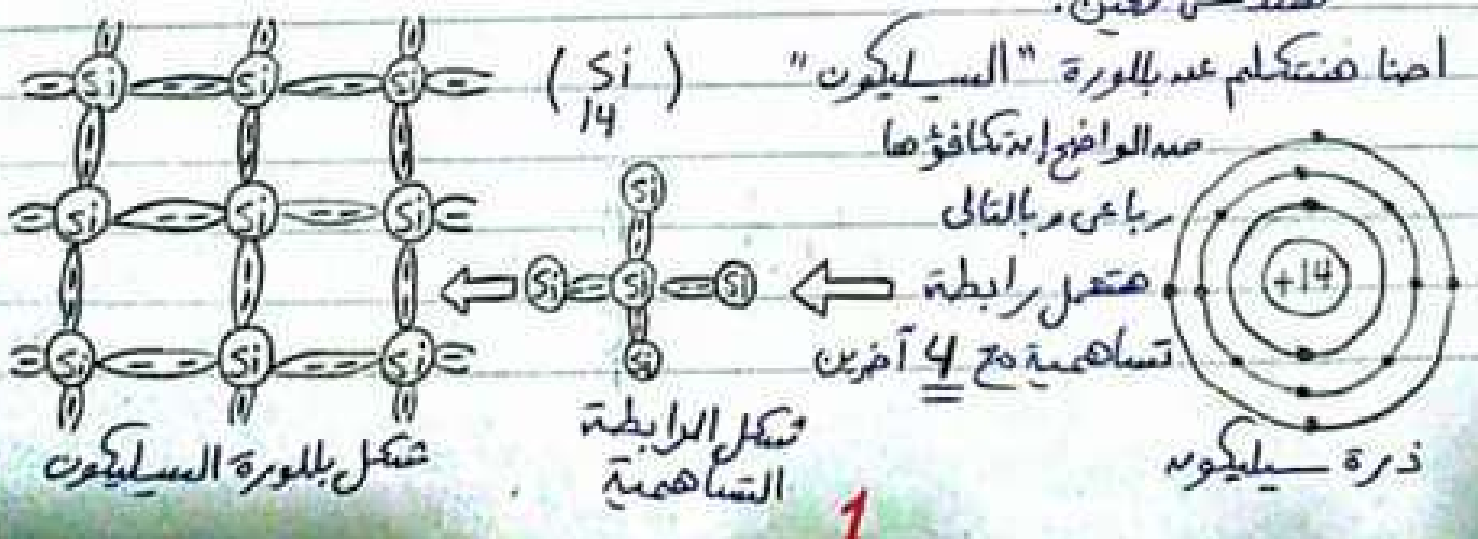 احنا هنتكلم عن بللورة "السيليكون"
(Si)
14
من الواضح إن تكافؤها
رباعى وبالتالى
هتعمل رابطة
تساهمية مع 4 آخرين
+14
ذرة سيليكون
Si
Si Si Si
Si
شكل الرابطة
التساهمية
Si Si Si
Si Si Si
Si Si Si
شكل بللورة السيليكون
1